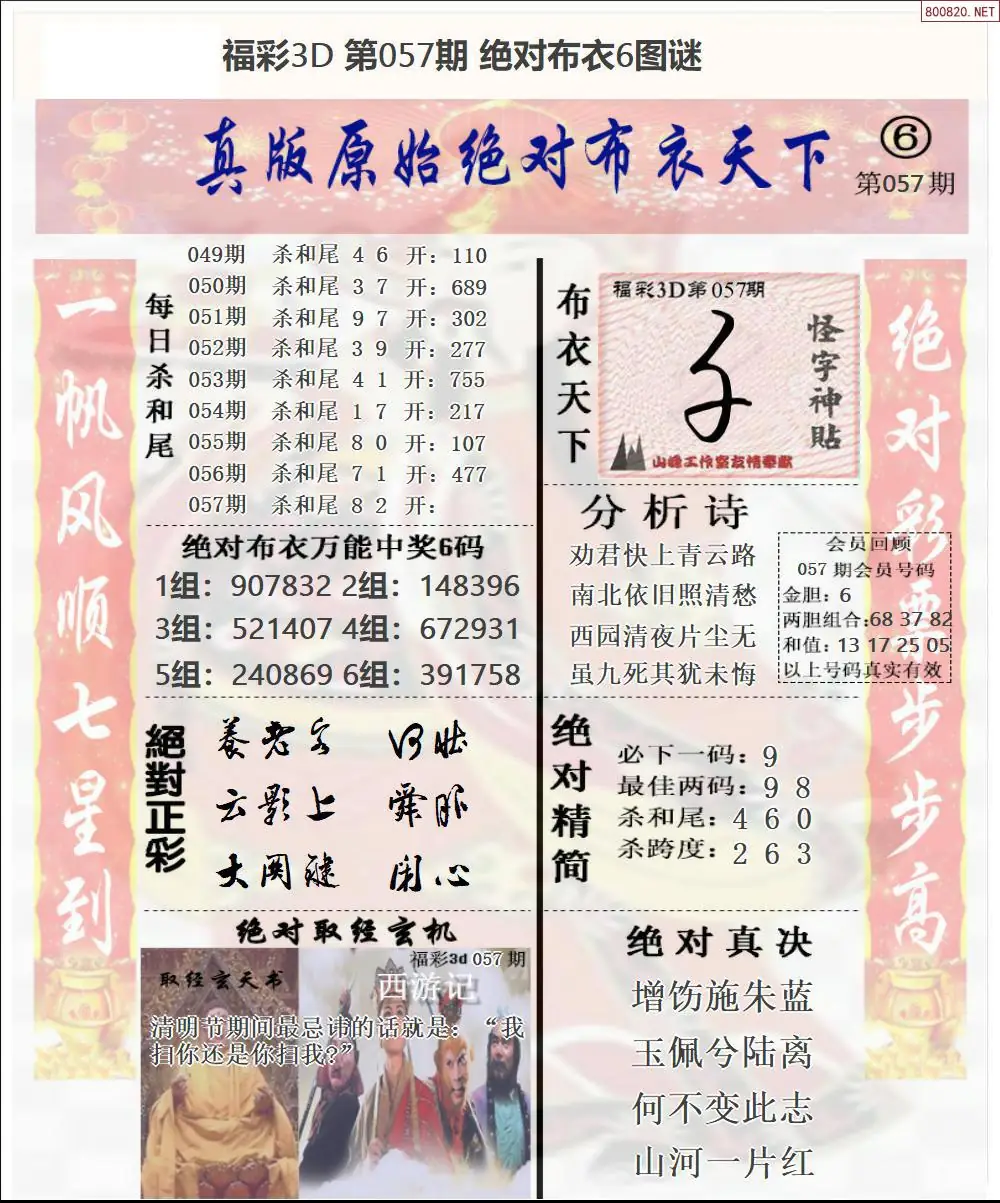 800820.NET
福彩3D 第057期 绝对布衣6图谜
真版原始绝对布衣天下
⑥
第057期
一帆风顺七星到
每日杀和尾
049期 杀和尾 4 6 开：110
050期 杀和尾 3 7 开：689
051期 杀和尾 9 7 开：302
052期 杀和尾 3 9 开：277
053期 杀和尾 4 1 开：755
054期 杀和尾 1 7 开：217
055期 杀和尾 8 0 开：107
056期 杀和尾 7 1 开：477
057期 杀和尾 8 2 开：
绝对布衣万能中奖6码
1组：907832 2组：148396
3组：521407 4组：672931
5组：240869 6组：391758
絕對正彩
養老字
云影上 舜
大関键 闲心
绝对取经玄机
福彩3d 057期
取经玄天书
西游记
清明节期间最忌讳的话就是：“我
扫你还是你扫我?”
布衣天下
福彩3D第057期
怪字神貼
山峰工作室友情奉献
分析诗
劝君快上青云路
南北依旧照清愁
西园清夜片尘无
虽九死其犹未悔
会员回顾
057期会员号码
金胆：6
两胆组合:68 37 82
和值：13 17 25 05
以上号码真实有效
绝对精简
必下一码：9
最佳两码：9 8
杀和尾：4 6 0
杀跨度：2 6 3
绝对真决
增饬施朱蓝
玉佩兮陆离
何不变此志
山河一片红
绝对彩票步步高